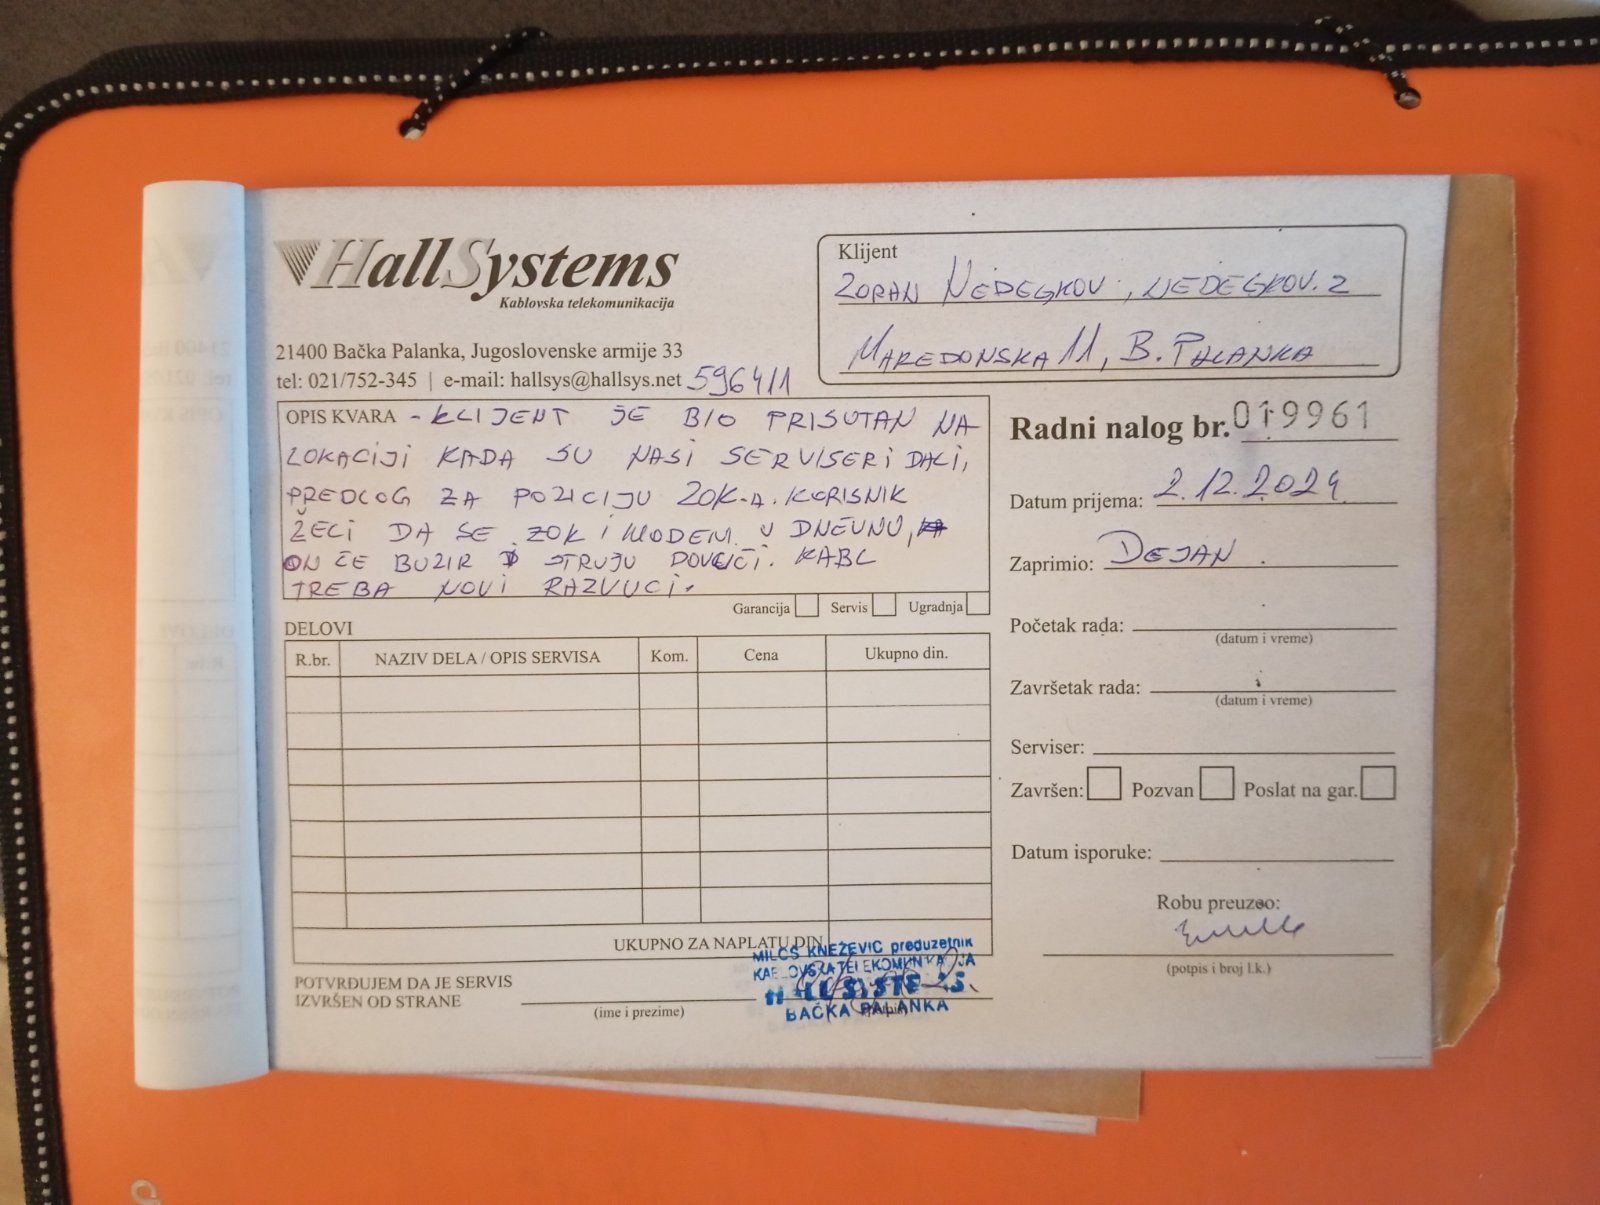 HallSystems
Kablovska telekomunikacija
21400 Bačka Palanka, Jugoslovenske armije 33
tel: 021/752-345 | e-mail: hallsys@hallsys.net 59641/1
Klijent
ZORAN NEDEGKOV, NEDEGKOV.Z
MAKEDONSKA 11, B. PALANKA
OPIS KVARA - KLIJENT JE BIO PRISUTAN NA
LOKACIJI KADA SU NASI SERVISERI DALI,
PREDLOG ZA POZICIJU ZOK-A. KORISNIK
ŽELI DA SE ZOK I MODEM U DNEVNU,
ON ĆE BUZIR STRUJU DOVUĆI. KABL
TREBA NOVI RAZVUCI.
Garancija Servis Ugradnja
Radni nalog br. 019961
Datum prijema: 2.12.2024
Zaprimio: DEJAN
Početak rada:
(datum i vreme)
Završetak rada:
(datum i vreme)
Serviser:
Završen: Pozvan Poslat na gar.
Datum isporuke:
Robu preuzeo:
(potpis i broj l.k.)
DELOVI
R.br. NAZIV DELA / OPIS SERVISA Kom. Cena Ukupno din.
UKUPNO ZA NAPLATU DIN
POTVRĐUJEM DA JE SERVIS
IZVRŠEN OD STRANE
(ime i prezime)
MILOŠ KNEŽEVIĆ preduzetnik
KABLOVSKA TELEKOMUNIKACIJA
BAČKA PALANKA